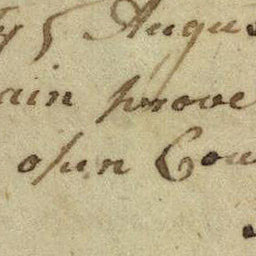 5 Augus
ain prove
open Cou